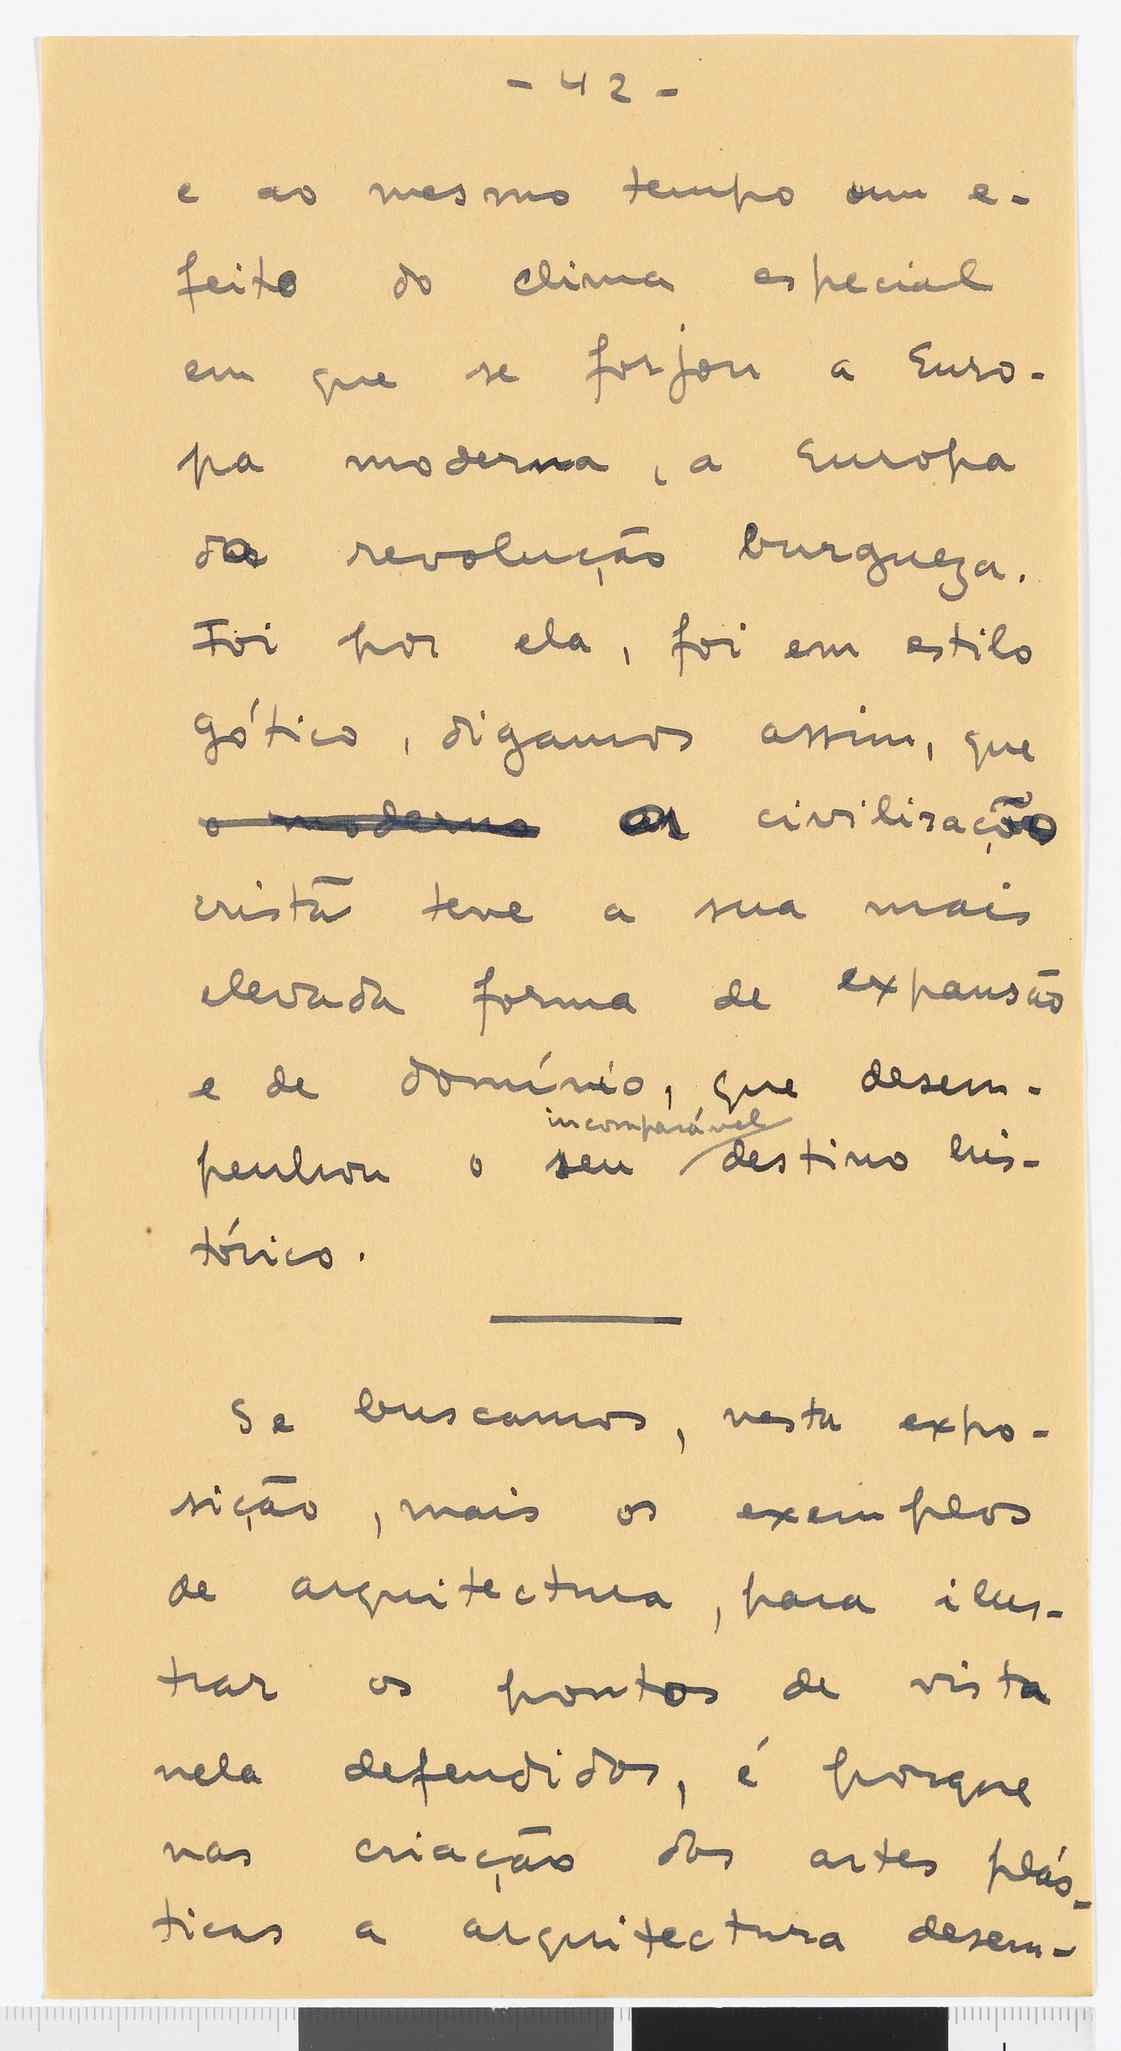 - 42 -
e ao mesmo tempo um e-
feito do clima especial
em que se forjou a Euro-
pa moderna, a Europa
da revolução burgueza.
Foi por ela, foi em estilo
gótico, digamos assim, que
o moderno a civilização
cristã teve a sua mais
elevada forma de expansão
e de domínio, que desem-
incomparável
penhou o seu destino his-
tórico.
Se buscamos, nesta expo-
sição, mais os exemplos
de arquitectura, para ilus-
trar os pontos de vista
nela defendidos, é porque
nas criação das artes plás-
ticas a arquitectura desem-